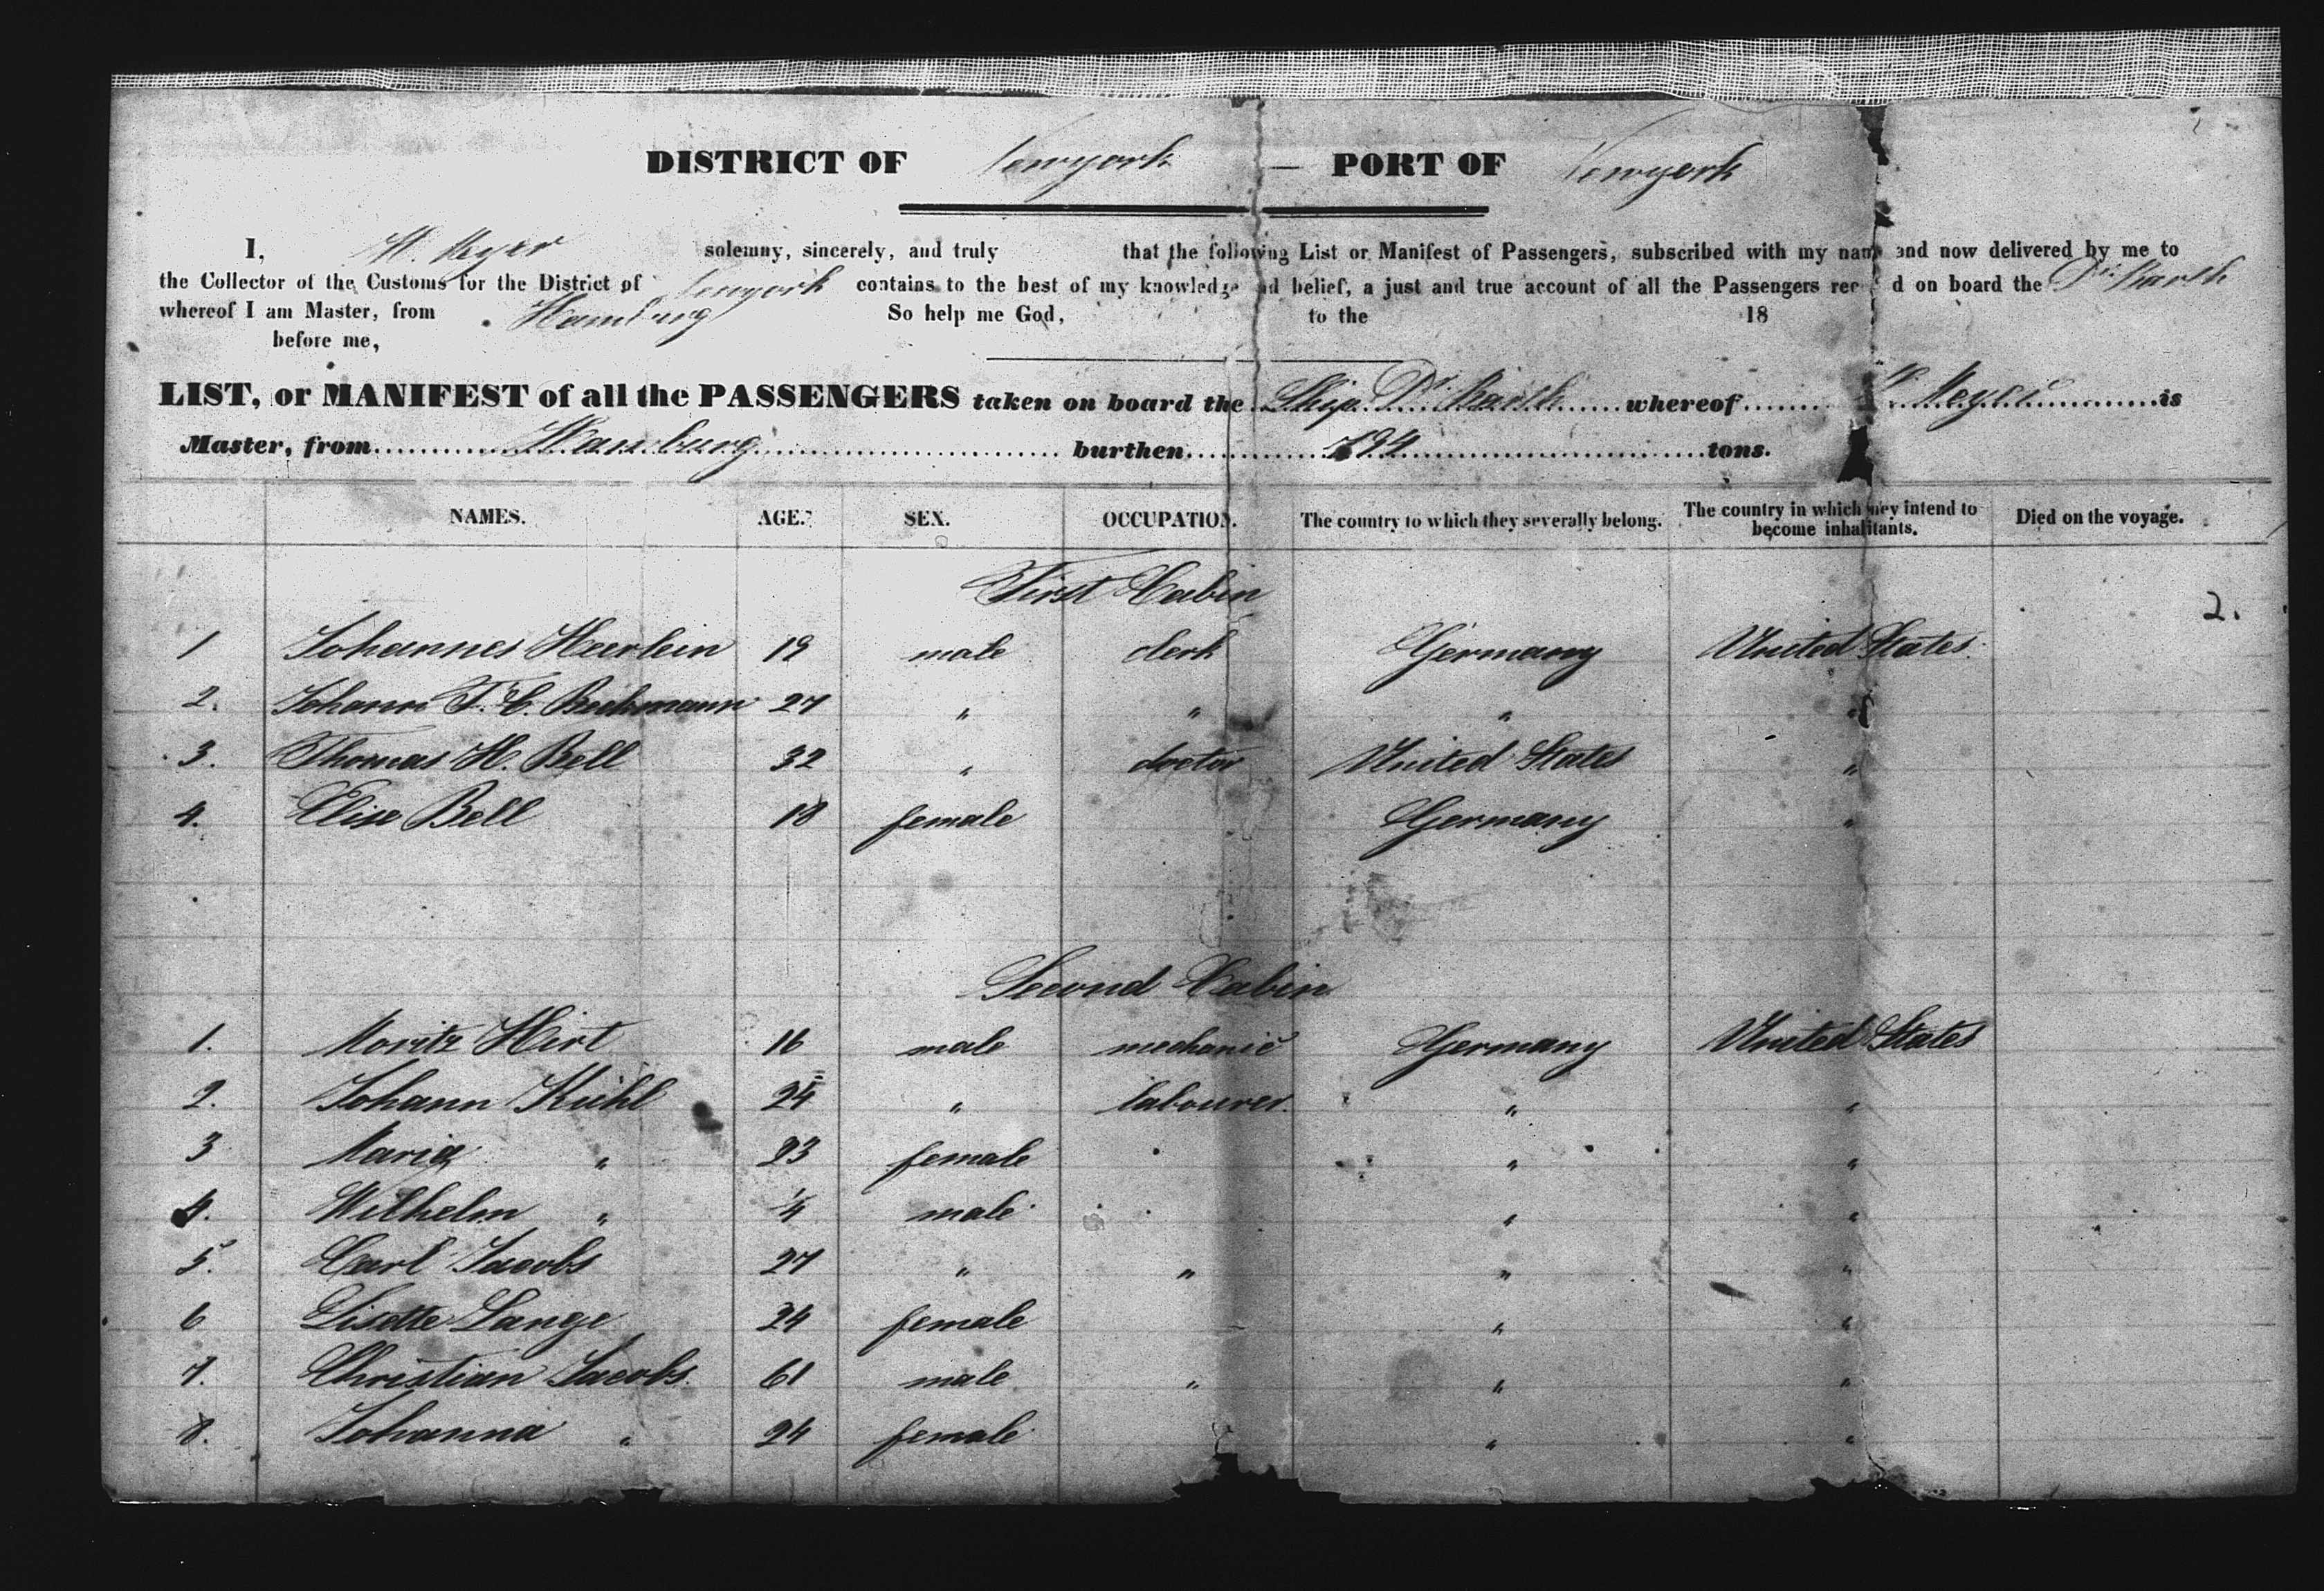 DISTRICT OF Newyork — PORT OF Newyork
I, H. Meyer solemny, sincerely, and truly that the following List or Manifest of Passengers, subscribed with my name and now delivered by me to
the Collector of the Customs for the District of Newyork contains to the best of my knowledge and belief, a just and true account of all the Passengers rec d on board the Dr. Barth
whereof I am Master, from Hamburg So help me God, to the 18
before me,
LIST, or MANIFEST of all the PASSENGERS taken on board the Ship Dr. Barth whereof H. Meyer is
Master, from Hamburg burthen 794 tons.
NAMES. AGE. SEX. OCCUPATION. The country to which they severally belong. The country in which they intend to become inhabitants. Died on the voyage.
First Cabin
2.
1 Johannes Heerlein 19 male clerk Germany United States.
2. Johann F. C. Beckmann 27 " " " "
3. Thomas H. Bell 32 " doctor United States "
4. Elise Bell 18 female Germany "
Second Cabin
1. Moritz Hirt 16 male mechanic Germany United States
2. Johann Kühl 24 " labourer " "
3 Maria " 23 female " "
4. Wilhelm " 4 male " "
5. Carl Jacobs 27 " " " "
6 Lisette Lange 24 female " "
7. Christian Jacobs. 61 male " " "
8. Johanna " 24 female " "